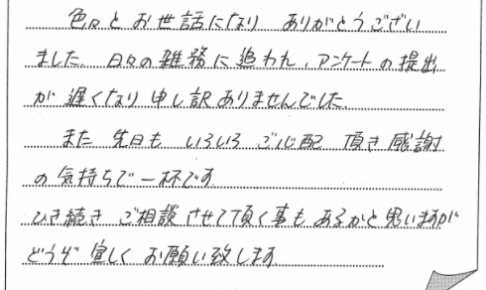 色々と お世話になり ありがとうござい
ました 日々の 雑務に 追われ、アンケートの提出
が 遅くなり 申し訳ありませんでした
また 先日も いろいろ ご心配 頂き 感謝
の 気持ちで 一杯です
ひき続き ご相談 させて頂く事も あるかと思いますが
どうぞ 宜しく お願い致します